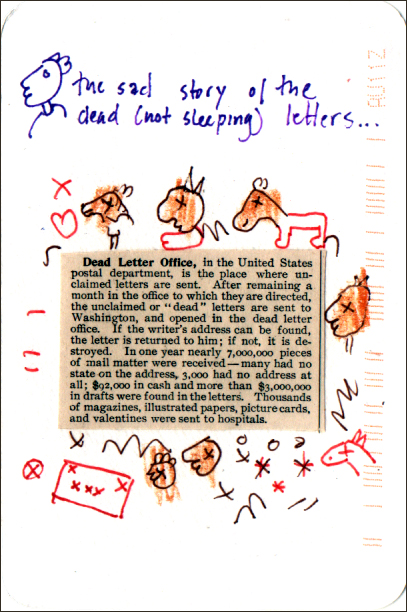 the sad story of the
dead (not sleeping) letters...
Dead Letter Office, in the United States
postal department, is the place where un-
claimed letters are sent. After remaining a
month in the office to which they are directed,
the unclaimed or "dead" letters are sent to
Washington, and opened in the dead letter
office. If the writer's address can be found,
the letter is returned to him; if not, it is de-
stroyed. In one year nearly 7,000,000 pieces
of mail matter were received—many had no
state on the address, 3,000 had no address at
all; $92,000 in cash and more than $3,000,000
in drafts were found in the letters. Thousands
of magazines, illustrated papers, picture cards,
and valentines were sent to hospitals.